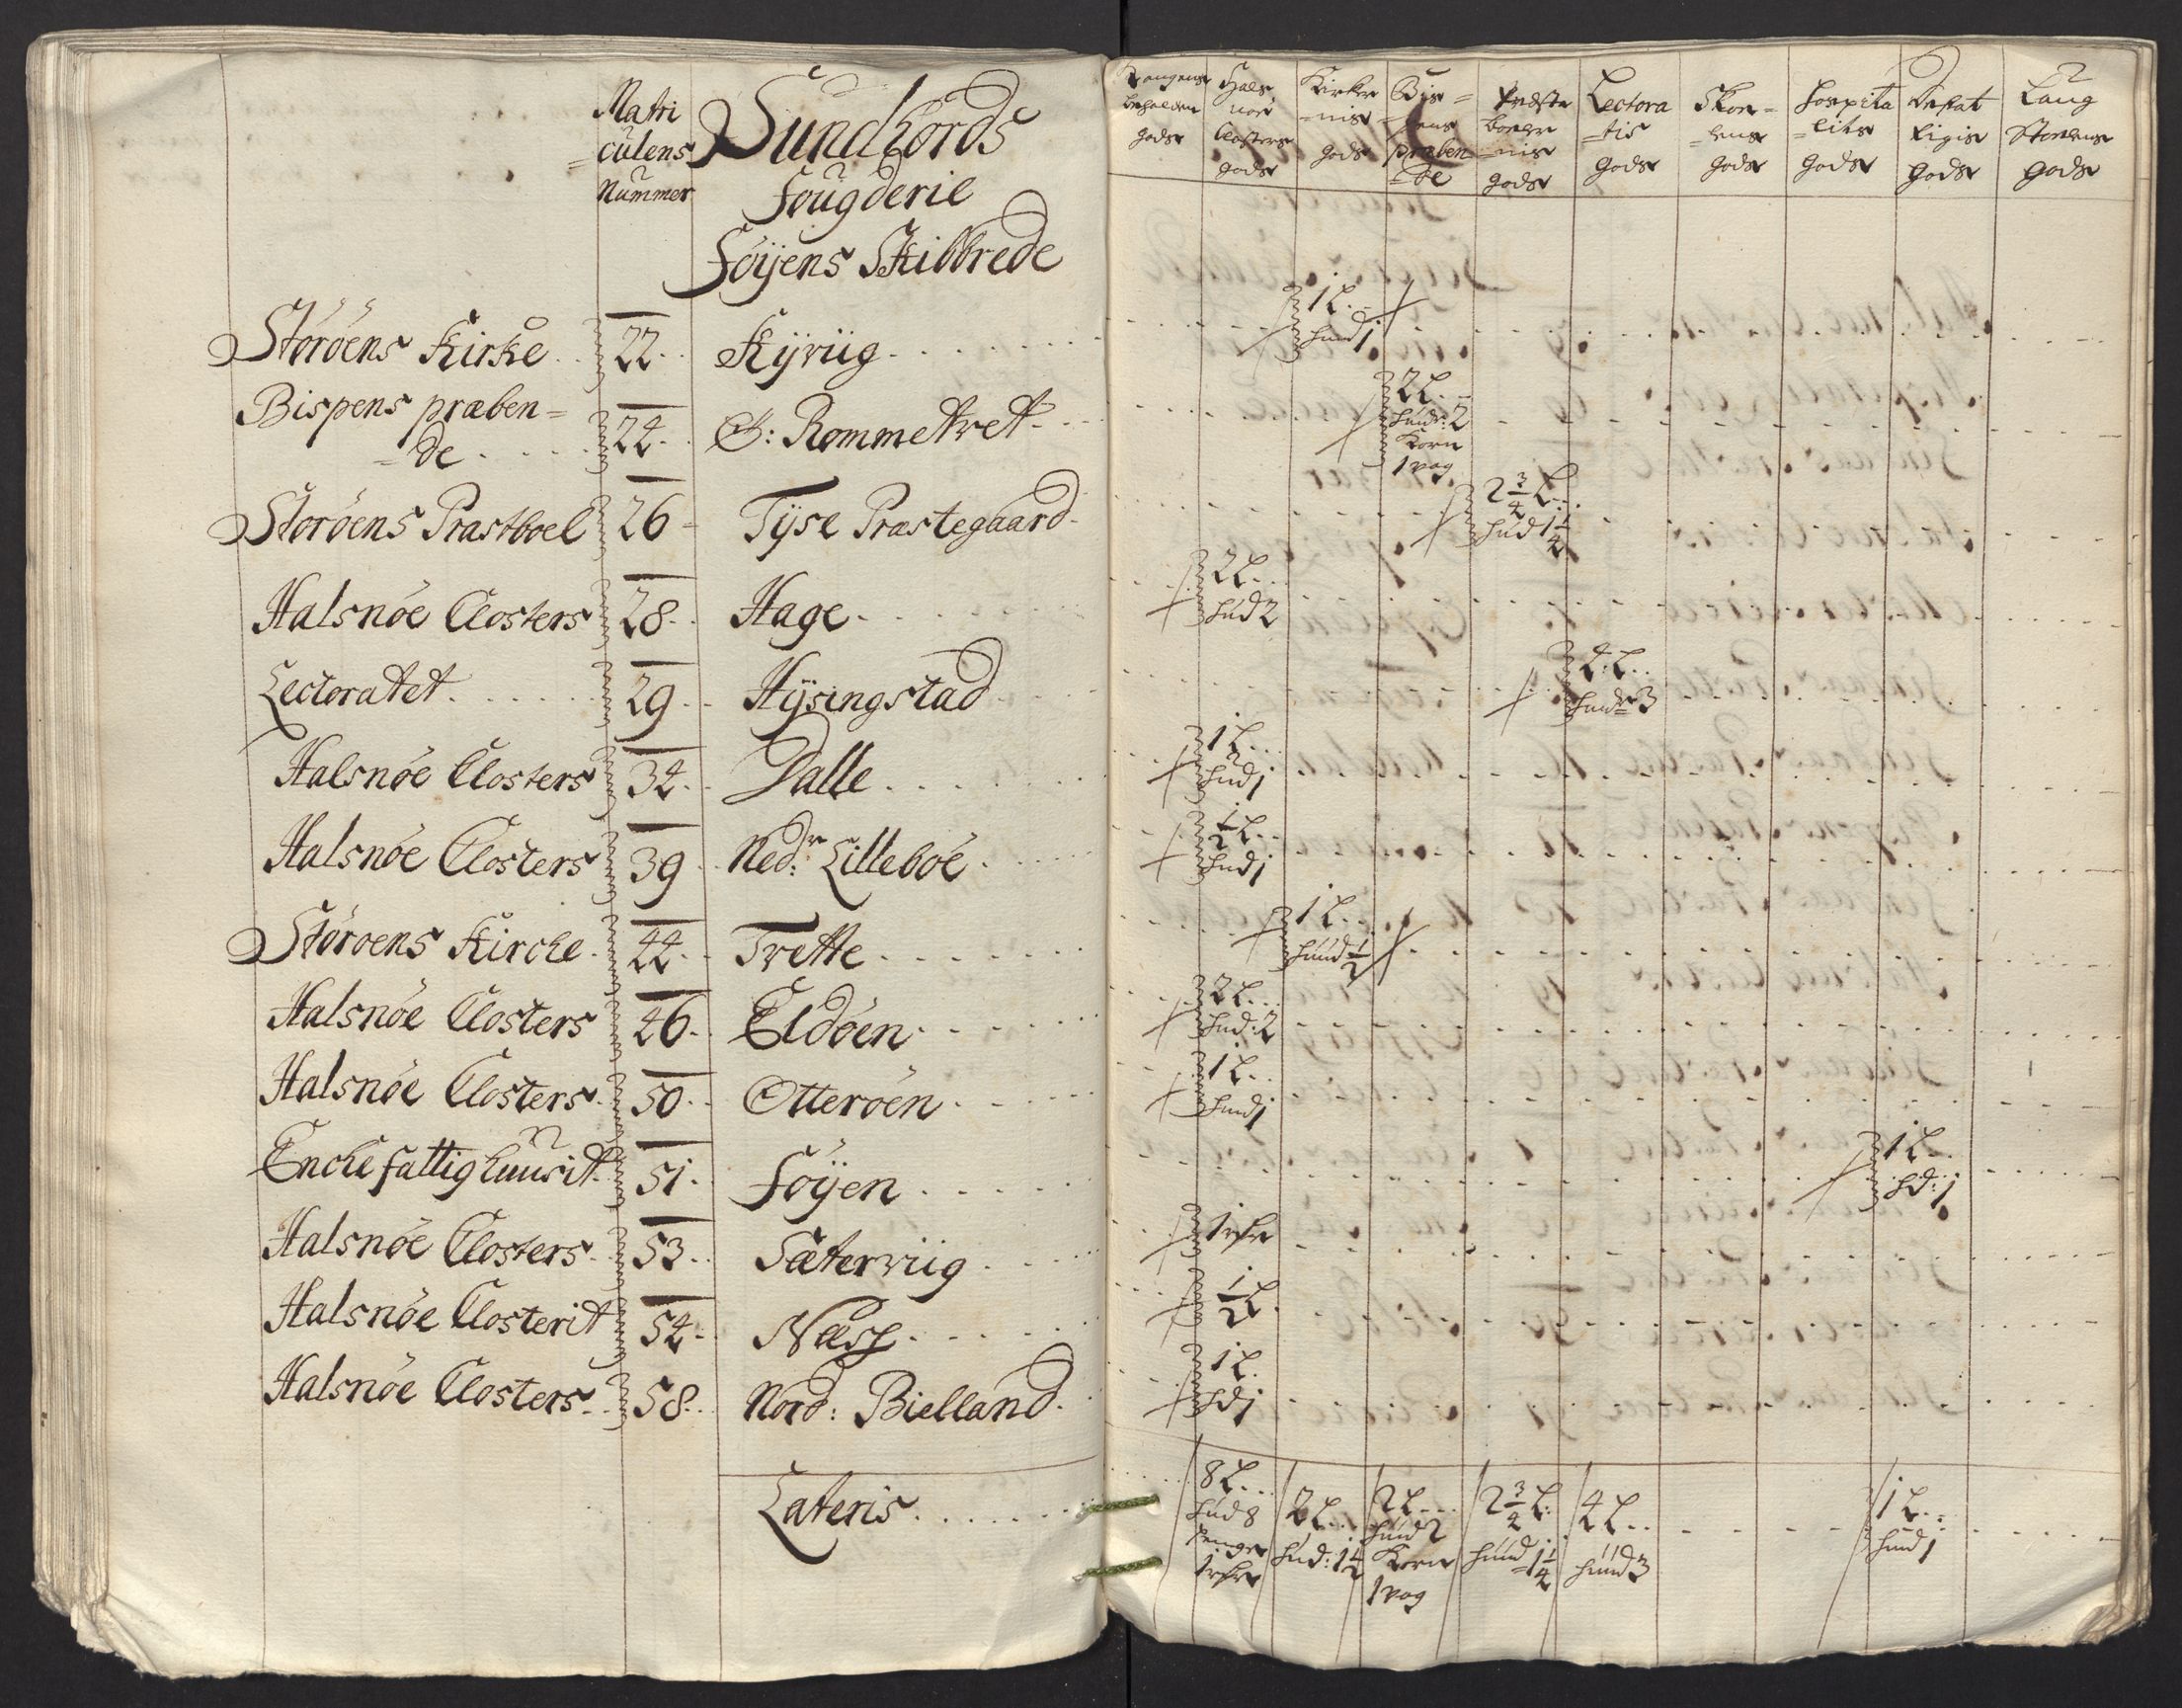 Matri
culens
Nummer
Sundhords
Fougderie
Föÿens Skibbrede
Störöens Kirke . . 22 . . Kÿrviig . . . .
Bispens præben=
=de . . . . 24 . . Ö: Rommetvet . . .
Störöens Præstboel 26 - Tÿse Præstegaard -
Halsnöe Closters 28 . . Hage . . . .
Lectoratet . . . . 29 . . Hÿsingstad
Halsnöe Closters 34 . . Dalle . . . .
Halsnöe Closters 39 . . Nedr: Lilleböe . . .
Störoens Kirche . 44 . . Trette . . . .
Halsnöe Closters 46 . . Eldöen . . . .
Halsnöe Closters . 50 . . Otteröen . . . .
Enche fattighuusit . 51 . . Föÿen . . . .
Halsnöe Closters . . 53 . . Sæterviig . . .
Halsnöe Closterit 54 - Næss . . . .
Halsnöe Closters . . 58 . . Nord: Bielland .
Lateris . . . .
gods
Hals
nöe
Closters
gods
Kirker
=nis
gods
Bis=
=pens
præben
=de
Præste
boler
=nis
gods
Lectora
=tis
gods
Skoe=
=lens
gods
Hospita
=lits
gods
gods
Laug
Stoelens
gods
1 L . .
Hud 1
2 L . .
Huder: 2
Korn
1 vog
2 3/4 L . .
Hud 1 1/4
2 L . . .
Hud 2
4 L . .
Huder 3
1 L . . .
Hud 1
1/2 L . .
Hud 1
1 L . .
Huud 1/2
2 L . . .
Hud: 2
1 L . .
Hud 1
1 L . .
Hd: 1
1/2 L .
1 L .
Hd 1
8 L . . .
Hud 8
Penge
2 L . . .
Hud: 1 1/2
2 L . . .
Huud 2
Korn
1 vog
2 3/4 L :
Huud 1 1/4
4 L . .
Huud 3
1 L . .
Hund 1